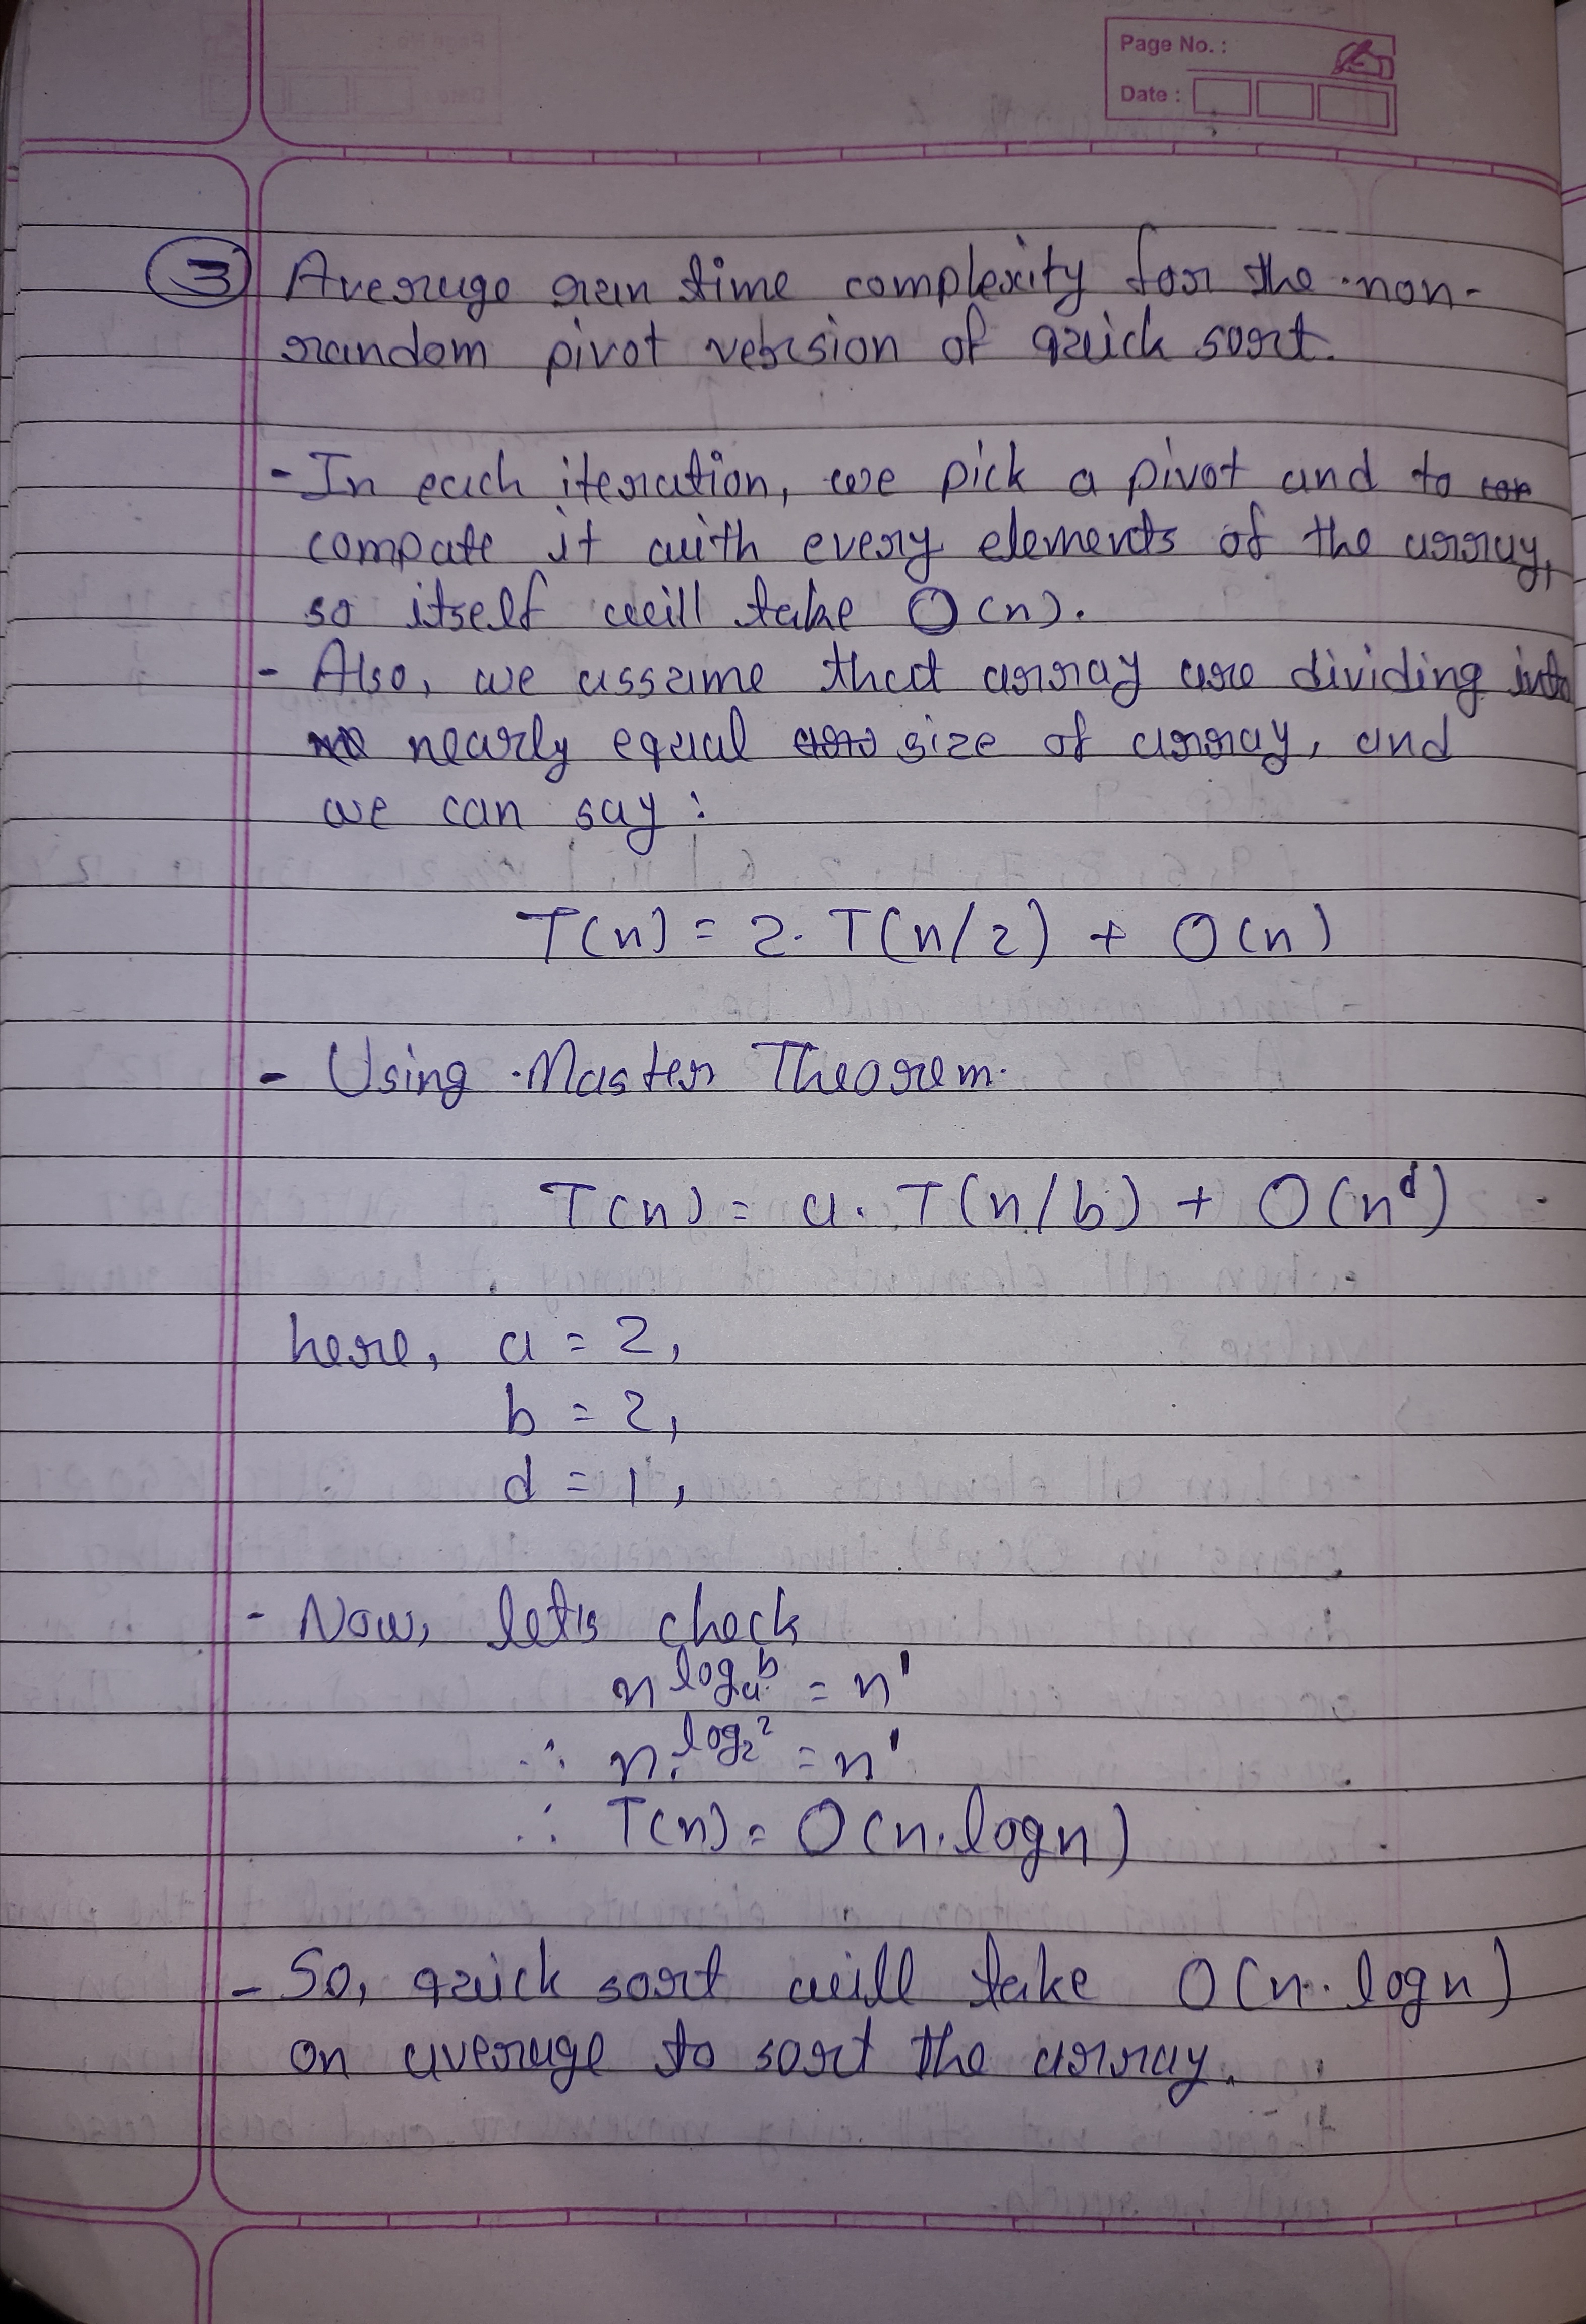 Page No. :
Date :
3 Average run time complexity for the non-
random pivot version of quick sort.
- In each iteration, we pick a pivot and to
compare it with every elements of the array,
so itself will take O(n).
- Also, we assume that array are dividing into
nearly equal size of array, and
we can say :
T(n) = 2. T(n/2) + O(n)
- Using Master Theorem.
T(n) = a. T(n/b) + O(n^d)
here, a = 2,
b = 2,
d = 1,
- Now, let's check
n^log_a b = n^1
∴ n^log_2 2 = n^1
∴ T(n) = O(n. log n)
- So, quick sort will take O(n. log n)
on average to sort the array.